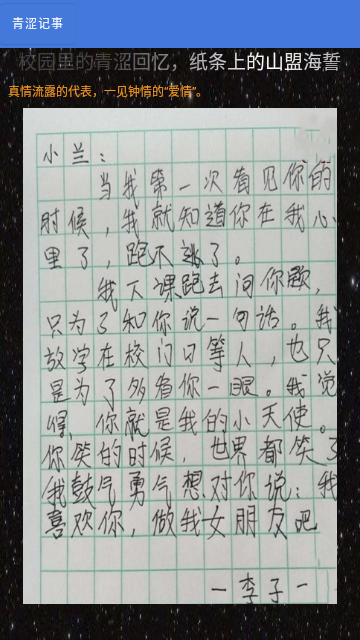 青涩记事
校园里的青涩回忆，纸条上的山盟海誓
真情流露的代表，一见钟情的“爱情”。
小兰：
当我第一次看见你的
时候，我就知道你在我心
里了，跑不了。
我下课跑去问你歌，
只为了和你说一句话。我
放学在校门口等人，也只
是为了多看你一眼。我觉
得，你就是我的小天使。
你笑的时候，世界都笑了
我鼓气勇气想对你说：我
喜欢你，做我女朋友吧
一李子一